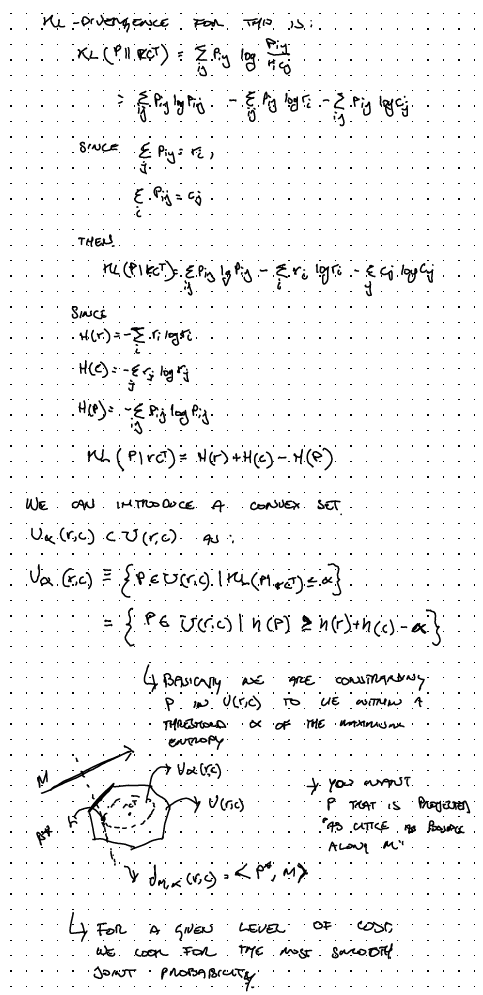 KL-DIVERGENCE FOR THIS IS:
KL(P || rcᵀ) = Σ_ij P_ij log P_ij / r_i c_j
= Σ_ij P_ij log P_ij - Σ_ij P_ij log r_i - Σ_ij P_ij log c_j
SINCE Σ_j P_ij = r_i,
Σ_i P_ij = c_j
THEN
KL(P | rcᵀ) = Σ_ij P_ij log P_ij - Σ_i r_i log r_i - Σ_j c_j log c_j
SINCE
H(r) = -Σ_i r_i log r_i
H(c) = -Σ_j r_j log r_j
H(P) = -Σ_ij P_ij log P_ij
KL(P | rcᵀ) = H(r) + H(c) - H(P)
WE CAN INTRODUCE A CONVEX SET
U_α(r,c) ⊂ U(r,c) as:
U_α(r,c) ≡ {P ∈ U(r,c) | KL(P | rcᵀ) ≤ α}
= {P ∈ U(r,c) | h(P) ≥ h(r) + h(c) - α}
↳ BASICALLY WE ARE CONSTRAINING
P IN U(r,c) TO LIE WITHIN A
THRESHOLD α OF THE MAXIMUM
ENTROPY
M
U_α(r,c)
U(r,c)
rcᵀ
P*
→ YOU WANT
P THAT IS PROJECTED
"AS LITTLE AS POSSIBLE
ALONG M"
d_M,α(r,c) = <P*, M>
↳ FOR A GIVEN LEVEL OF COST
WE LOOK FOR THE MOST SMOOTH
JOINT PROBABILITY